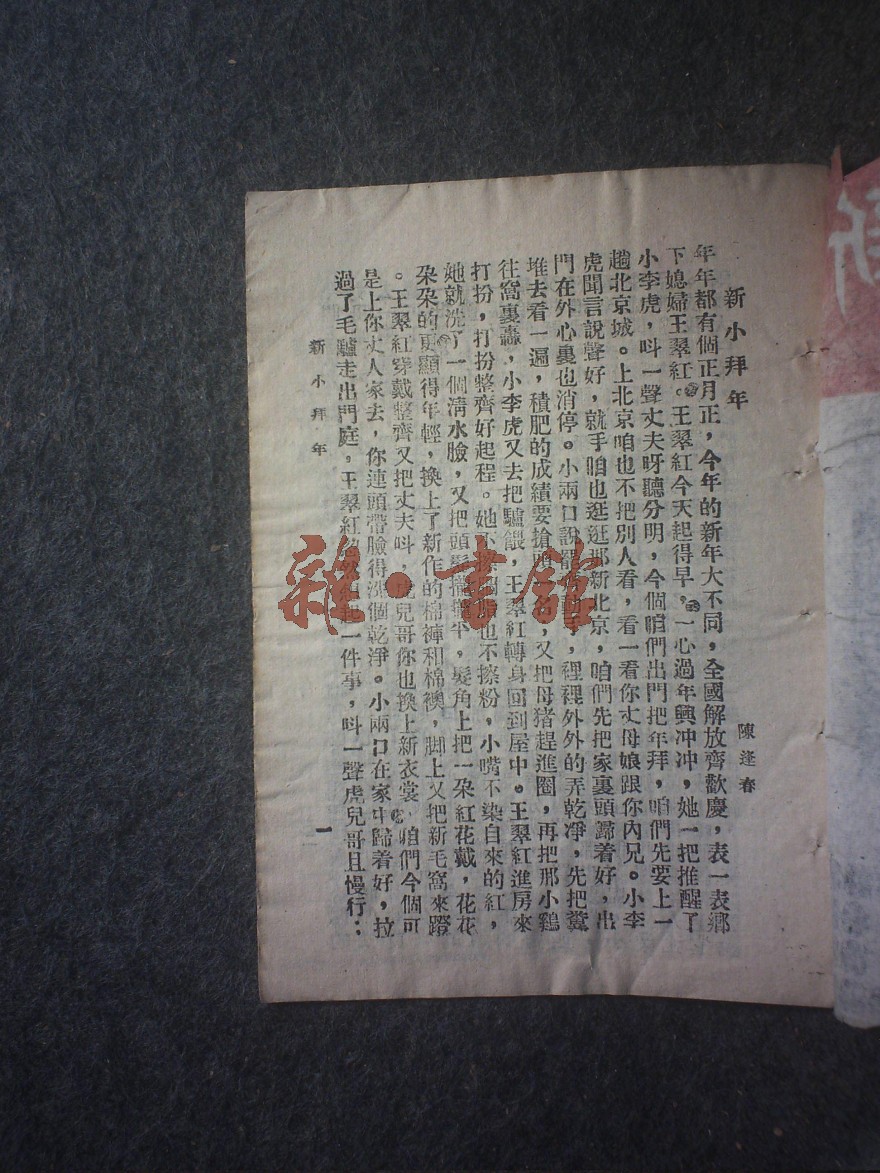 新小拜年
陳逢春
年年都有個正月正，今年的新年大不同，全國解放齊歡慶，表一表鄉
下媳婦王翠紅。王翠紅今天起得早，一心過年興冲冲，她一把推醒了
小李虎，呌一聲丈夫呀聽分明，今個咱們出門把年拜，咱們先要上一
趟北京城。上北京咱也不把別人看，看一看你丈母娘跟你內兄。小李
虎聞言說聲好，就手咱也逛逛那新北京，咱們先把家裏頭歸着好，出
門在外心裏也消停。小兩口說罷動手，裡裡外外的弄乾凈，先把糞
堆去看一遍，積肥的成績要搶，又把母猪趕進圈，再把那小鷄
往窩裏轟，小李虎又去把驢餵，王翠紅轉身回到屋中。王翠紅進房來
打扮，打扮整齊好起程。她不擦也不擦粉，小嘴不染自來的紅，
她就洗了一個清水臉，又把頭，髮角上把一朶紅花戴，花花
朶朶的更顯得年輕，換上了新作的棉褲和棉襖，脚上又把新毛窩來蹬
。王翠紅穿戴整齊又把丈夫呌，虎兒哥你也換上新衣裳，咱們今個可
是上你丈人家去，你連頭帶臉得洗個乾淨。小兩口在家中歸着好，拉
過了毛驢走出門庭，王翠紅一件事，呌一聲虎兒哥且慢行：
新小拜年
一
雜·書館
新